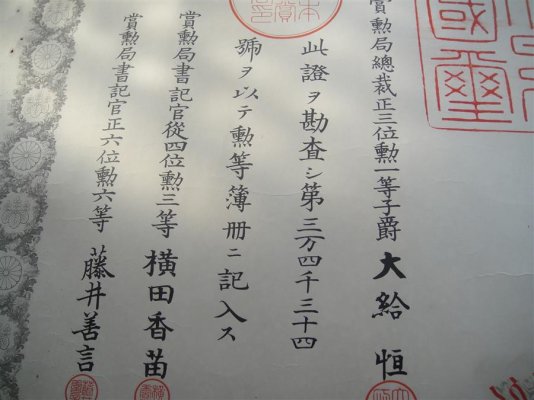 賞勲局總裁正三位勲一等子爵大給恒
此證ヲ勘査シ第三万四千三十四
號ヲ以テ勲等簿冊ニ記入ス
賞勲局書記官從四位勲三等橫田香苗
賞勲局書記官正六位勲六等藤井善言